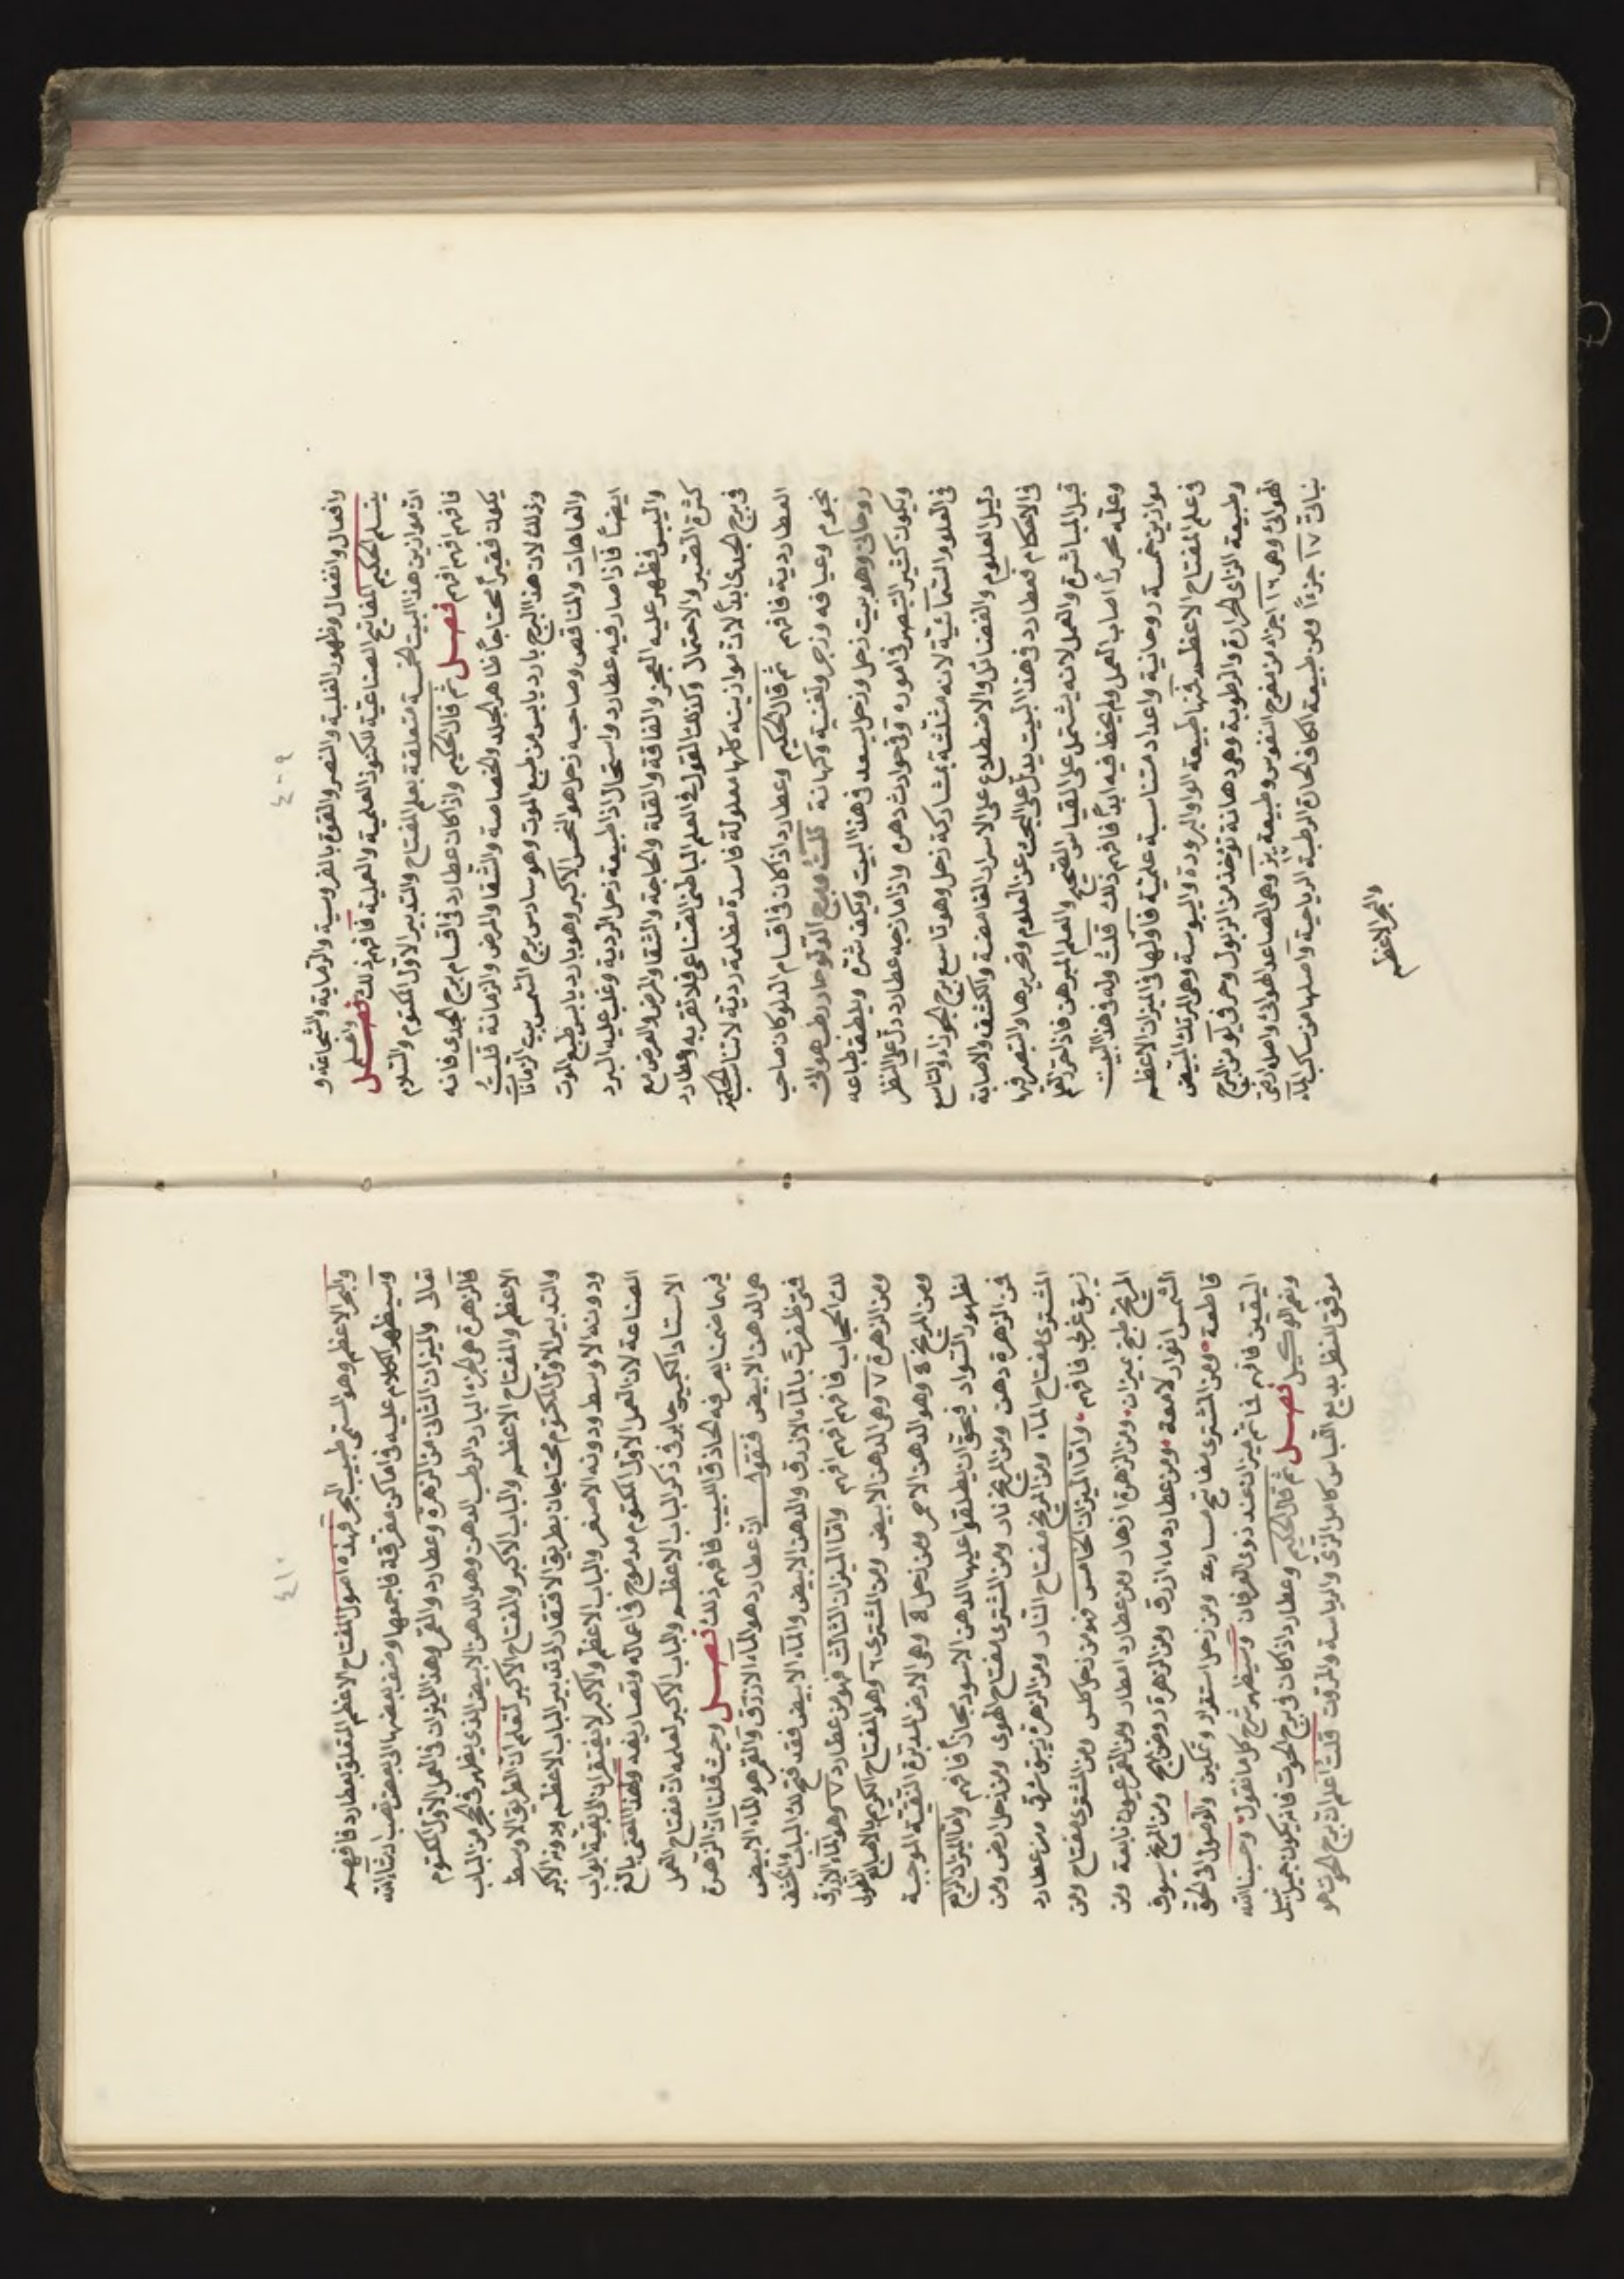 ٤٠٩
وافعال وانفعال وظهور الغلبة والنصر والقوة بالفروسية والرماية والشجاعة و
ينسلم الحكيم المفاتيح الصناعية للكنوز العلمية والعملية فافهم ذلك فصل واعلم
ان موازين هذا البيت الخمسة متعلقة بعلم المفتاح والتدبير الاول المكتوم والسلام
فافهم افهم افهم فصل ثم قال الحكيم واذا كان عطارد فى اقسام برج الجدى فانه
يكون فقيراً محتاجاً ظاهر الجلد والخصاصة والشقا والمرض والزمانة قلت
وذلك لان هذا البرج بارد يابس من طبع الموت وهو سادس برج الشمس بيت الزمانات
والعاهات والمناقص وصاحبه زحل هو النحس الاكبر وهو بارد يابس طبع الموت
ايضاً فاذا صار فيه عطارد واستحال اذا طبيعة زحل الردية وغلب عليه البرد
واليبس فظهر عليه العجز والفاقة والقلة والحاجة والشقا والمرض والعرض مع
كثرة الصبر والاحتمال وكذلك القول فى العلم الباطنى الصناعى فلا تقربه وعطارد
فى برج الجدى ابداً لان موازينه كلها معلولة فاسدة مظلمة ردية لا تناسب الحكمة
العطاردية فافهم ثم قال الحكيم وعطارد اذا كان فى اقسام الدلو كان صاحب
نجوم وعيافه وزجر ولغنية وكهانة قلت وبرج الدلو حار رطب هوائى
روحانى وهو بيت زحل وزحل يسعد فى هذا البيت ويكف شره ويلطف طباعه
ويكون كثير التبصر فى اموره وفى حوادث دهره واذا مازجه عطارد دل على النظر
فى العلوم السمائية لانه مثلثة بمشاركة زحل وهو تاسع برج الجوزاء والتاسع
دليل العلوم والفضائل والاضطلاع على الاسرار الغامضة والكشف والاصابة
فى الاحكام فعطارد فى هذا البيت يدل على البحث عن العلوم وتحريرها والتبصر فيها
قبل المباشرة والعمل لانه يشتمل على القياس الصحيح والعلم المبرهن فاذا تحرز العلم
وعلمه محرراً اصاب العمل ولم يخط فيه ابداً فافهم ذلك قلت وله فى هذا البيت
موازين خمسة روحانية واعداد متناسبة علمية فاولها فى الميزان الاعظم
فى علم المفتاح الاعظم فمنها طبيعة الواو البرودة واليبوسة وهى المرتك المبيض
وطبيعة الزاى الحرارة والرطوبة وهى دهانة تؤخذ من الزبول وحرفى كو من البرج
الهوائى وهى ١٦ اجزاء من مفرح النفوس وطبيعة يز وهى الصاعد الهوائى واصله ارضى
نباتى ١٧ جزءاً ومن طبيعة الكاف الحارة الرطبة الرياحية واصلها من ساكب الماء
والبحر الاعظم
٤١٠
والبحر الاعظم وهو المسمى طبيب البحر فهذه اصول المفتاح الاعظم المتعلق بعطارد فافهم
وسيظهر الكلام عليه فى اماكن مفرقة فاجمعها وضف بعضها الى بعض تصب ان شاء الله
تعالى والميزان الثانى من الزهرة وعطارد والقمر وهذا الميزان فى العمل الاول المكتوم
فالزهرة هى الجزء البارد الرطب الدهن وهو الدهن الابيض الذى يظهر فى الحجر من الباب
الاعظم والمفتاح الاعظم والباب الاكبر والمفتاح الاكبر لتعلم ان الطريق الاوسط
والتدبير الاول المكتوم محتاجان بطريق الافتقار الى تدبير الباب الاعظم ودونه الاكبر
ودونه الاوسط ودونه الاصغر والباب الاعظم والاكبر لا يفتقران الى بقية ابواب
الصناعة لان العمل الاول المكتوم مدموج فى اعماله وتصاريفه ولهذا المعنى بالغ
الاستاد الكبير جابر فى ذكر الباب الاعظم والباب الاكبر لعلمه ان مفتاح العمل
فيهما ضمنا يعرفه الحاذق اللبيب فافهم ذلك فصل وحيث قلنا ان الزهرة
هى الدهن الابيض فنقول ان عطارد هو الماء الازرق والقمر هو الماء الابيض
فمتى ظفرت بالماء الازرق والدهن الابيض والماء الابيض فقد فتح لك الباب وانكشف
لك الحجاب فافهم افهم افهم واما الميزان الثالث فهو من عطارد ٧ وهو الماء الازرق
ومن الزهرة ٧ وهى الدهن الابيض ومن المشترى ٦ وهو المفتاح الكريم بالاصباغ
ومن المريخ ٤ وهو الدهن الاحمر ومن زحل ٤ وهى الارض المدبرة النقية الموجبة
لظهور السواد فيحق ان يطلقوا عليها الدهن الاسود مجازاً فافهم واما الميزان الرابع
فمن الزهرة دهن ومن المريخ نار ومن المشترى مفتاح الهوى ومن زحل ارض ومن
المشترى مفتاح الماء ومن المريخ مفتاح النار ومن الزهرة زيبق شرقى ومن عطارد
زيبق غربى فافهم واما الميزان الخامس فهو من زحل كلس ومن المشترى مفتاح ومن
المريخ طبخ بميزان ومن الزهرة ازهار ومن عطارد امطار ومن القمر عيون نابعة ومن
الشمس انوار لامعة ومن عطارد ماء ازرق ومن الزهرة دوح ومن المريخ سيوف
قاطعة ومن المشترى مفاتيح مسارعة ومن زحل استقرار وتمكين والوصول الى الحق
اليقين فافهم فما ثم ميزان عند ذوى العرفان وسيظهر شرح كل ما نقول وحسبنا الله
ونعم الوكيل فصل ثم قال الحكيم وعطارد اذا كان فى برج الحوت فانه يكون جميل
موفق النظر بديع القياس كامل الزى والرياسة والمروات قلت اعلم ان برج الحوت هو